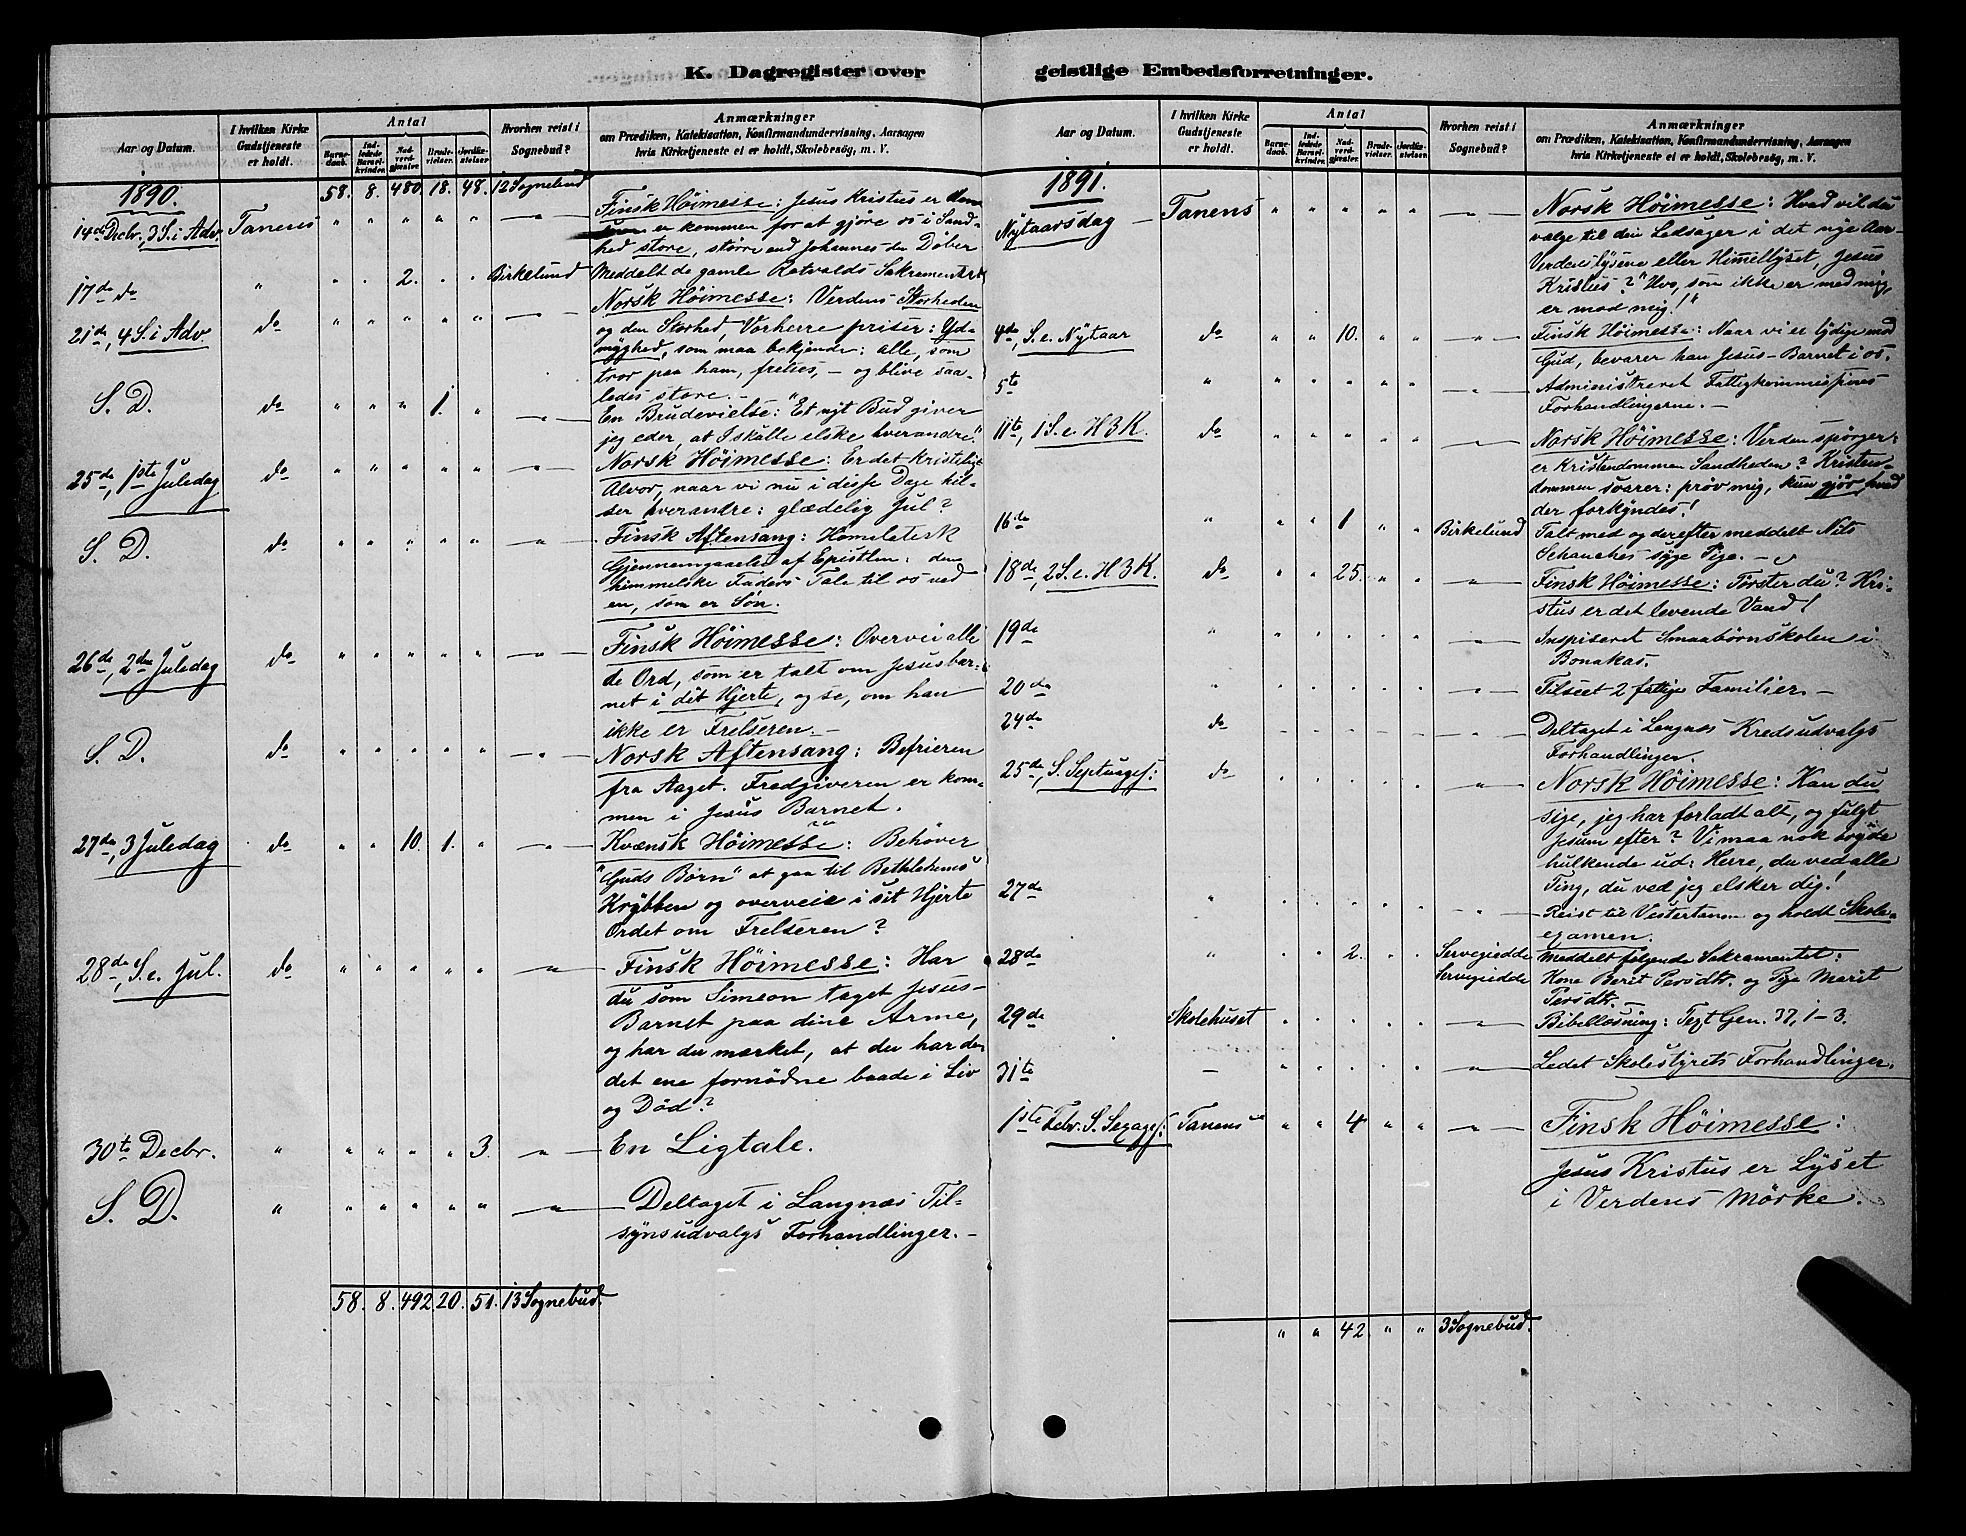 K. Dagregister over
Aar og Datum.
I hvilken Kirke
Gudstjeneste
er holdt.
Antal
Barne-
daab.
Ind-
ledede
Barsel-
kvinder.
Nad-
verd-
gjester.
Brude-
vielser.
Jordfæ-
stelser
Hvorhen reist i
Sognebud?
Anmærkninger
om Prædiken, Katekisation, Konfirmandundervisning, Aarsagen
hvis Kirketjeneste ei er holdt, Skolebesøg, m. V.
1890. 58. 8. 480 18. 48. 12 Sognebud
14de Decbr., 3 S. i Adv. Tanens " " " " " — " —
Finsk Høimesse: Jesus Kristus er
er kommen for at gjöre os i Sand-
hed store, större end Johannes den Döber
17de do " " " 2. " " Birkelund Meddelt de gamle Ratvalds Sakramentet
21de, 4 S. i Adv. do " " " " " — " —
Norsk Höimesse: Verdens Storheden
og den Storhed, Vorherre priser: Yd-
myghed, som maa bekjende: alle, som
tror paa ham, frelses, — og blive saa-
ledes store. —
S. D. do " " " 1. " — " —
En Brudevielse: "Et nyt Bud giver
jeg eder, at I skulle elske hverandre."
25de, 1ste Juledag do " " " " " — " —
Norsk Höimesse: Er det kristeligt
Alvor, naar vi nu i disse Dage hil-
ser hverandre: glædelig Jul?
S. D. do " " " " " — " —
Finsk Aftensang: Homiletisk
Gjennemgaaelse af Epistlen: den
himmelske Faders Tale til os ved
en, som er Søn.
26de, 2den Juledag do " " " " " — " —
Finsk Höimesse: Overvei alle
de Ord, som er talt om Jesusbar-
net i dit Hjerte, og se, om han
ikke er Frelseren. —
S. D. do " " " " " — " —
Norsk Aftensang: Befrieren
fra Aaget. Fredgiveren er kom-
men i Jesus Barnet.
27de, 3 Juledag do " " 10. 1. " — " —
Kvænsk Höimesse: Behöver
"Guds Börn" at gaa til Bethlehems
Krybben og overveie i sit Hjerte
Ordet om Frelseren?
28de, S. e. Jul. do " " " " " — " —
Finsk Höimesse: Har
du som Simeon taget Jesus-
Barnet paa dine Arme,
og har du mærket, at du har den
det ene fornödne baade i Liv
og Död?
30te Decbr. " " " " " 3. — " — En Ligtale.
S. D. " " " " " " — " — Deltaget i Langnæs Til-
synsudvalgs Forhandlinger. —
58. 8. 492 20. 51. 13 Sognebud.
geistlige Embedsforretninger.
Aar og Datum.
I hvilken Kirke
Gudstjeneste
er holdt.
Antal
Barne-
daab.
Ind-
ledede
Barsel-
kvinder.
Nad-
verd-
gjester.
Brude-
vielser.
Jordfæ-
stelser
Hvorhen reist i
Sognebud?
Anmærkninger
om Prædiken, Katekisation, Konfirmandundervisning, Aarsagen
hvis Kirketjeneste ei er holdt, Skolebesøg, m. V.
1891.
Nytaarsdag — Tanens " " " " " — " —
Norsk Höimesse: Hvad vil du
vælge til din Ledsager i det nye Aar —
Verdenslysene eller Himmellyset, Jesus
Kristus? "Hvo, som ikke er med mig,
er mod mig!"
4de, S. e. Nytaar do " " 10. " " — " —
Finsk Höimesse: Naar vi er lydige mod
Gud, bevarer han Jesus-Barnet i os.
5te " " " " " " — " —
Administreret Fattigkommissionens
Forhandlingerne. —
11te, 1 S. e. H3K. do " " " " " — " —
Norsk Höimesse: Verden spörger:
er Kristendommen Sandheden? Kristen-
dommen svarer: pröv mig, kun gjör, hvad
der forkyndes!
16de " " " 1 " " Birkelund Talt med og derefter meddelt Nils
Schanches syge Pige. —
18de, 2 S. e. H3K. do " " 25. " " — " —
Finsk Höimesse: Törster du? Kri-
stus er det levende Vand!
19de " " " " " " — " —
Inspiseret Smaabörnskolen i
Bonakas.
20de " " " " " " — " — Tilseet 2 fattige Familier. —
24de do " " " " " — " —
Deltaget i Langnæs Kredsudvalgs
Forhandlinger.
25de, S. Septuages: do " " " " " — " —
Norsk Höimesse: Kan du
sige, jeg har forladt alt, og fulgt
Jesum efter? Vi maa nok bryde
hulkende ud: Herre, du ved alle
Ting, du ved jeg elsker dig!
27de " " " " " " — " —
Reist til Vestertanen og holdt Skole-
examen.
28de " " " 2. " " Servegiedde Meddelt fölgende Sakramentet:
Servegiedde Kone Berit Persdtr. og Pige Marit
Persdtr. —
29de Skolehuset " " " " " — " — Bibellæsning: Text Gen. 37, 1–3.
31te — " " " " " — " — Ledet Skolestyrets Forhandlinger.
1ste Febr. S. Sexages: Tanens " " 4 " " — " —
Finsk Höimesse:
Jesus Kristus er Lyset
i Verdens Mörke.
" " 42 " " 3 Sognebud.